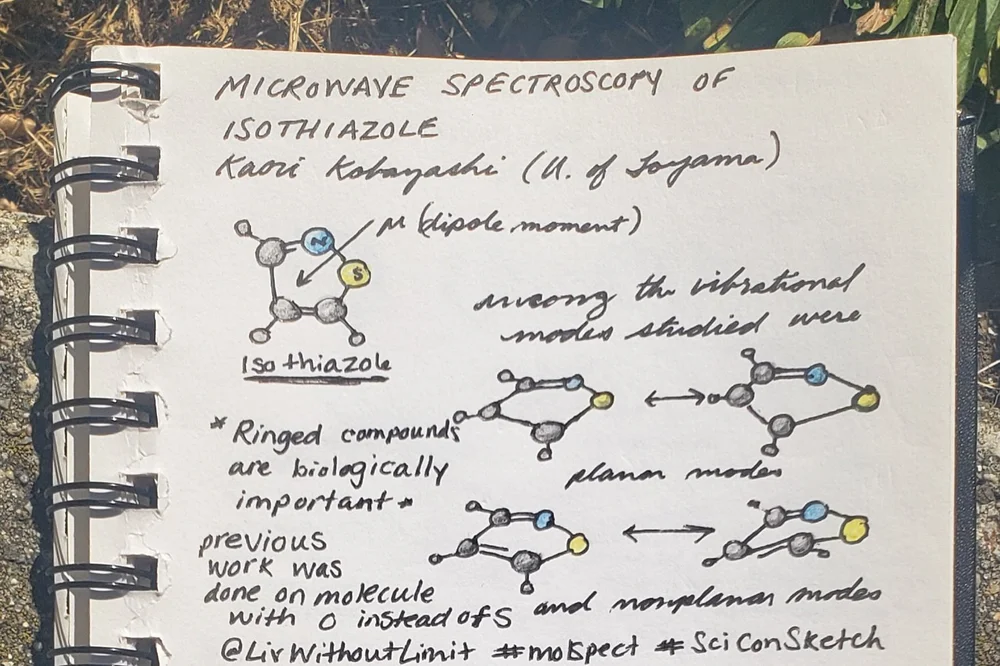 MICROWAVE SPECTROSCOPY OF
ISOTHIAZOLE
Kaori Kobayashi (U. of Toyama)
μ (dipole moment)
N
S
Isothiazole
among the vibrational
modes studied were
planar modes
* Ringed compounds
are biologically
important *
and nonplanar modes
previous
work was
done on molecule
with O instead of S
@LivWithoutLimit #molspect #SciConSketch